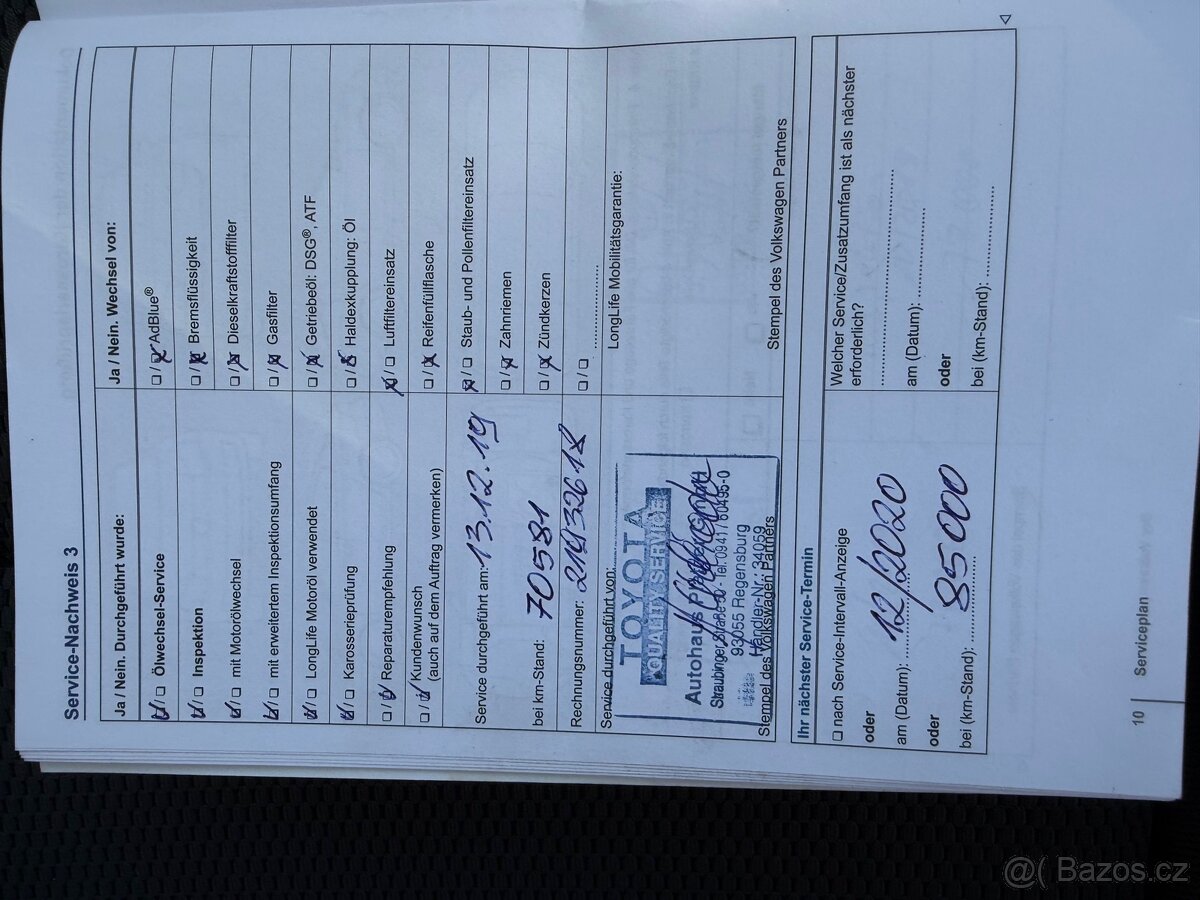 Service-Nachweis 3
Ja / Nein. Durchgeführt wurde:
Ölwechsel-Service
Inspektion
mit Motorölwechsel
mit erweitertem Inspektionsumfang
LongLife Motoröl verwendet
Karosserieprüfung
Reparaturempfehlung
Kundenwunsch
(auch auf dem Auftrag vermerken)
Service durchgeführt am: 13.12.19
bei km-Stand: 70581
Rechnungsnummer:
Service durchgeführt von:
TOYOTA
QUALITY SERVICE
Autohaus
Straubinger Straße - Tel. 0941/60495-0
93055 Regensburg
Händler-Nr.: 34059
Stempel des Volkswagen Partners
Ja / Nein. Wechsel von:
AdBlue®
Bremsflüssigkeit
Dieselkraftstofffilter
Gasfilter
Getriebeöl: DSG®, ATF
Haldexkupplung: Öl
Luftfiltereinsatz
Reifenfüllflasche
Staub- und Pollenfiltereinsatz
Zahnriemen
Zündkerzen
LongLife Mobilitätsgarantie:
Stempel des Volkswagen Partners
Ihr nächster Service-Termin
nach Service-Intervall-Anzeige
oder
am (Datum): 12/2020
oder
bei (km-Stand): 85000
Welcher Service/Zusatzumfang ist als nächster
erforderlich?
am (Datum):
oder
bei (km-Stand):
10
Serviceplan
@( Bazos.cz